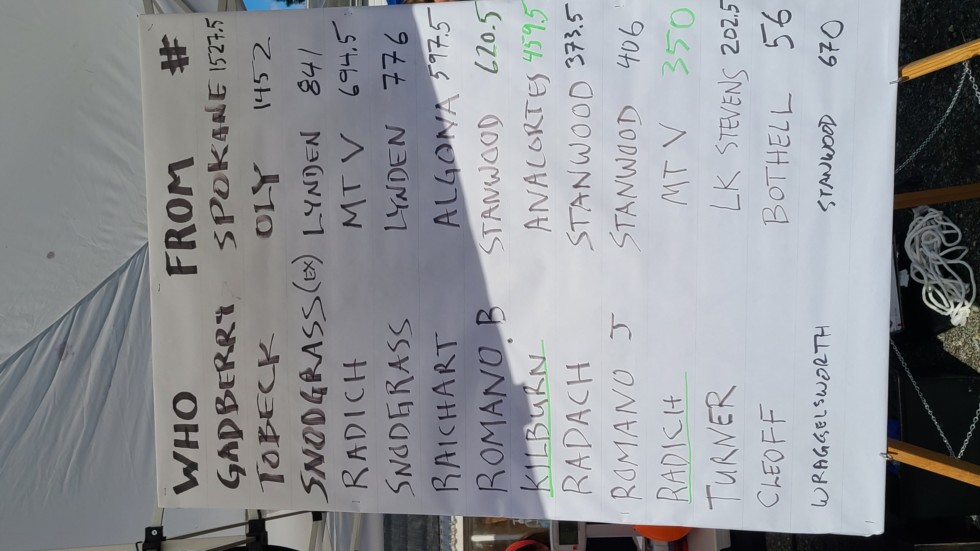 WHO FROM #
GADBERRY SPOKANE 1527.5
TOBECK OLY 1452
SNODGRASS (EX) LYNDEN 841
RADICH MTV 694.5
SNODGRASS LYNDEN 776
RAICHART ALGONA 597.5
ROMANO. B STANWOOD 620.5
KILBURN ANACORTES 459.5
RADACH STANWOOD 373.5
ROMANO J STANWOOD 406
RADICH MTV 350
TURNER LK STEVENS 202.5
CLEOFF BOTHELL 56
WRAGGELSWORTH STANWOOD 670